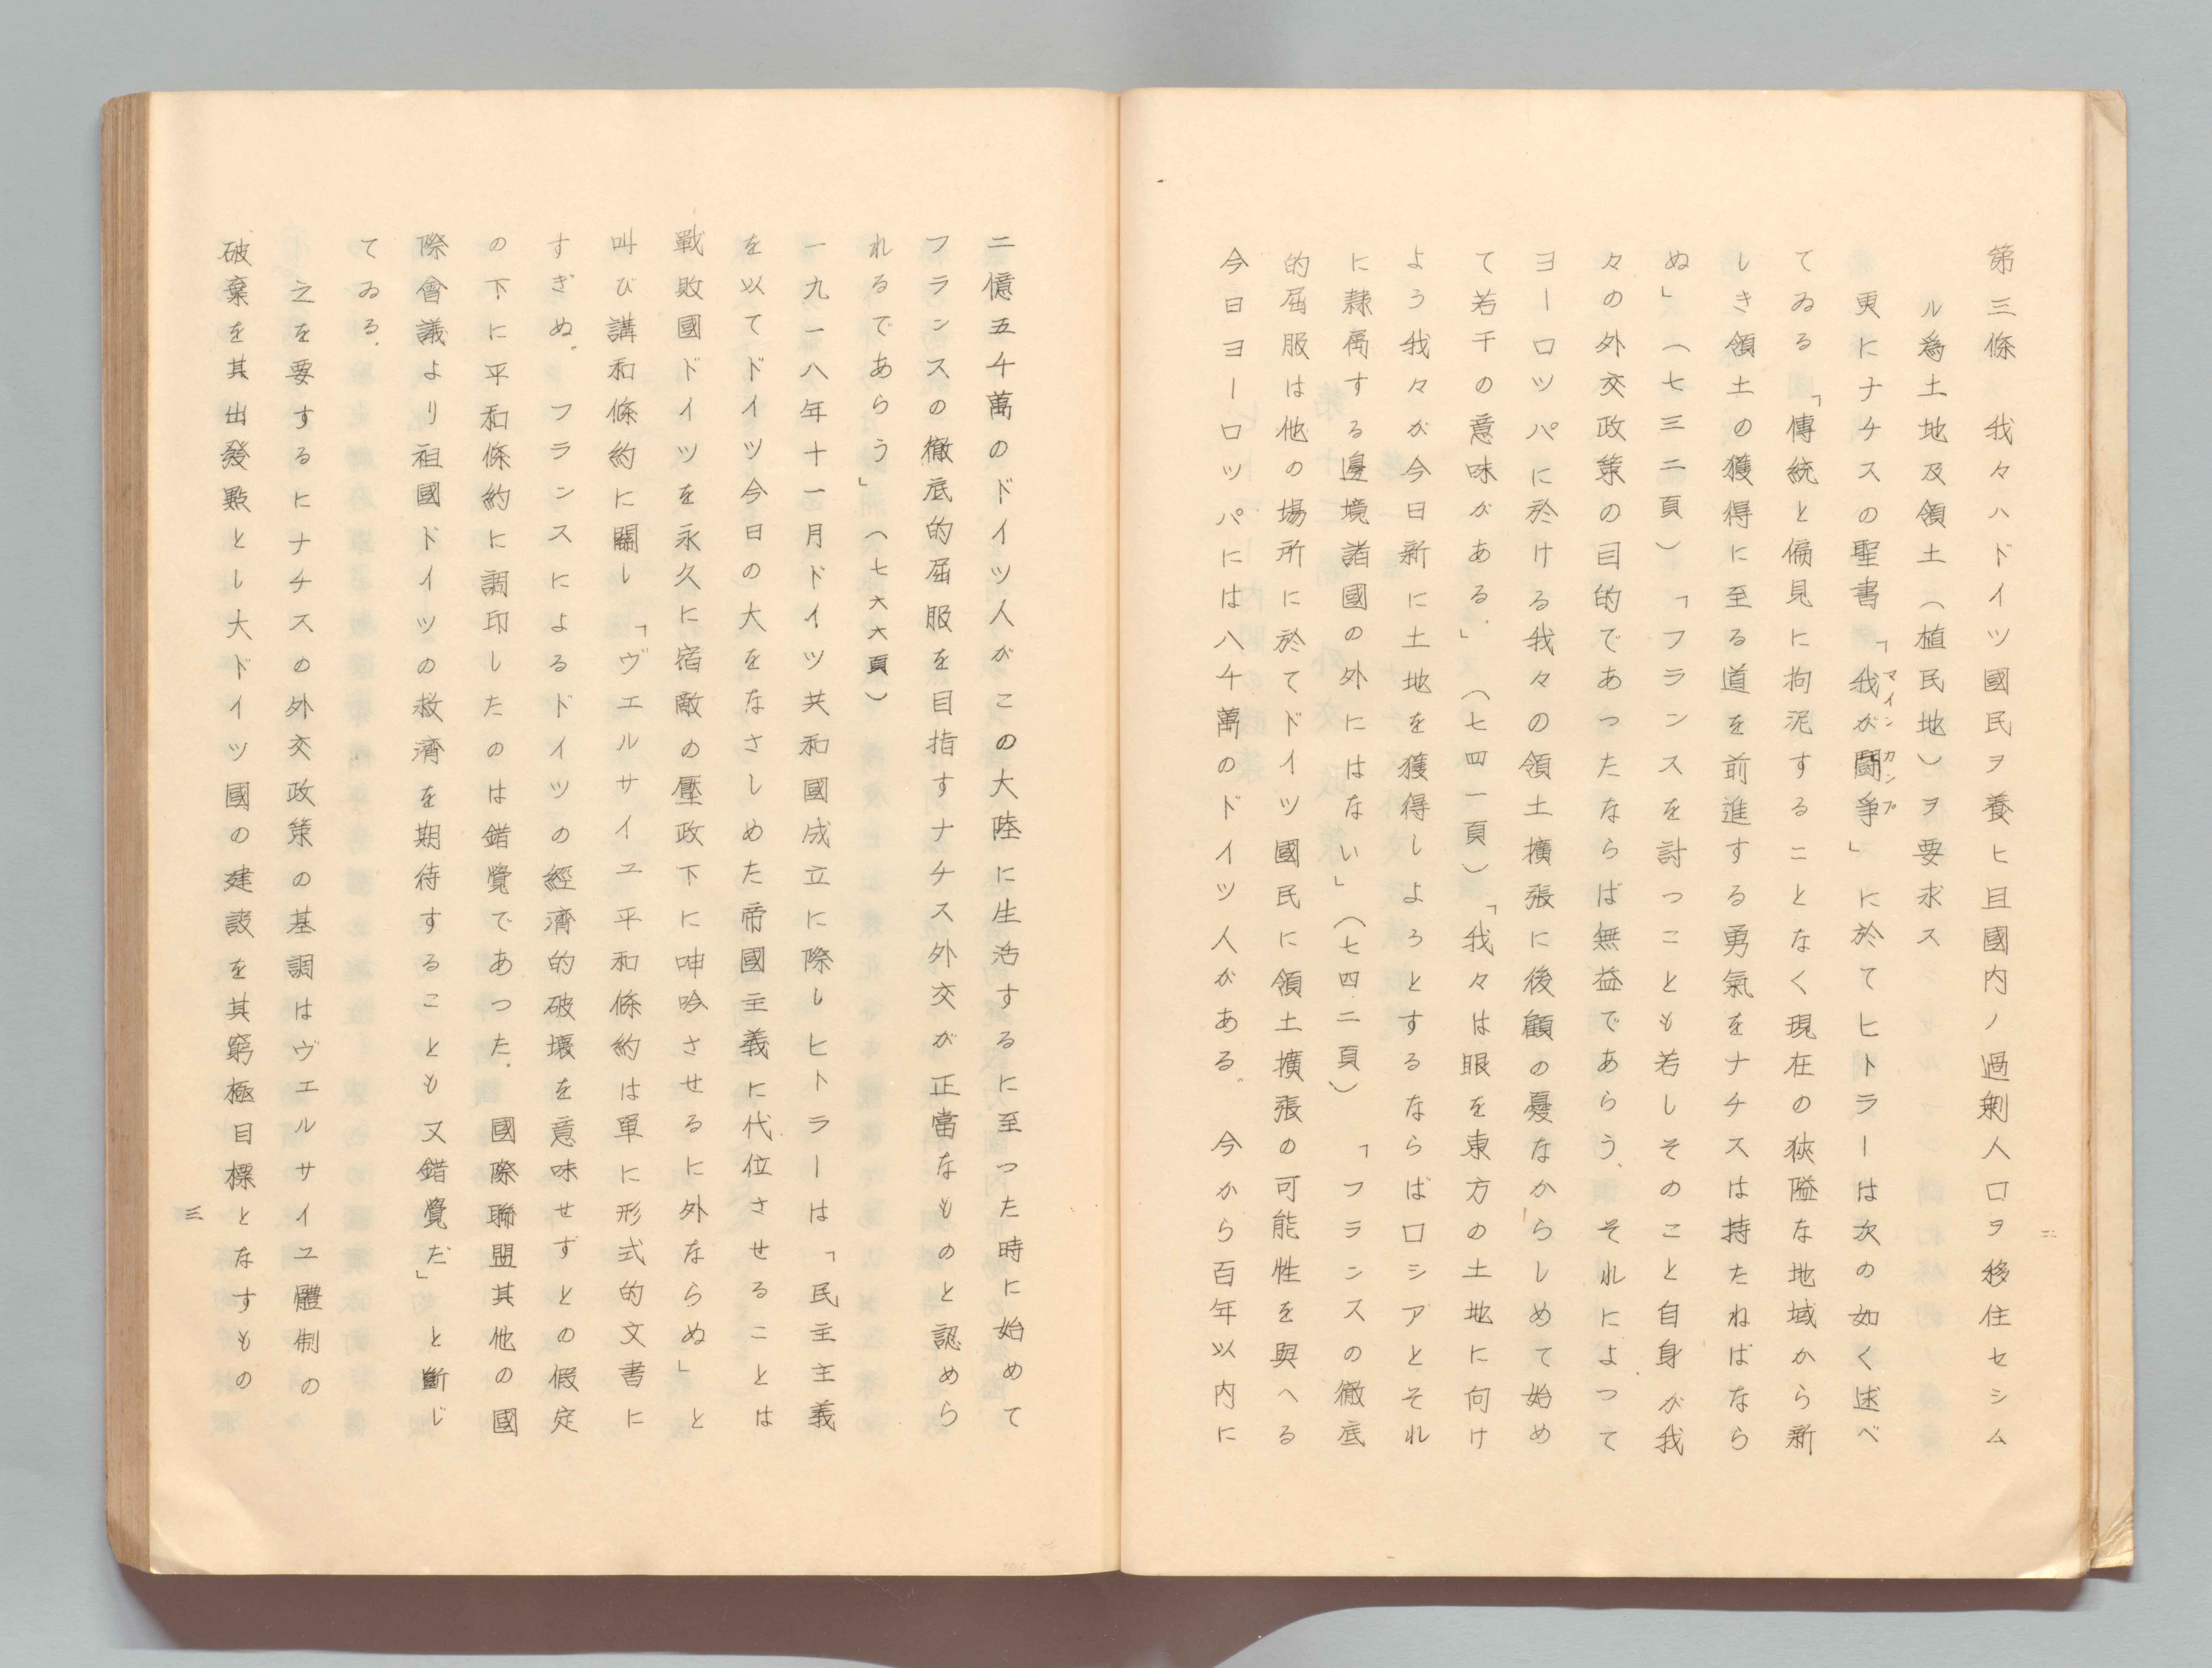 第三條　我々ハドイツ國民ヲ養ヒ且國内ノ過剰人口ヲ移住セシム
ル為土地及領土（植民地）ヲ要求ス
更にナチスの聖書「我が闘爭」に於てヒトラーは次の如く述べ
マインカンプ
てゐる「傳統と偏見に拘泥することなく現在の狹隘な地域から新
しき領土の獲得に至る道を前進する勇氣をナチスは持たねばなら
ぬ」（七三二頁）「フランスを討つことも若しそのこと自身が我
々の外交政策の目的であったならば無益であらう、それによって
ヨーロツパに於ける我々の領土擴張に後顧の憂なからしめて始め
て若干の意味がある。」（七四一頁）「我々は眼を東方の土地に向け
よう我々が今日新に土地を獲得しようとするならばロシアとそれ
に隷属する邊境諸國の外にはない」（七四二頁）「フランスの徹底
的屈服は他の場所に於てドイツ國民に領土擴張の可能性を與へる
今日ヨーロッパには八千萬のドイツ人がある。今から百年以内に
二
二億五千萬のドイツ人がこの大陸に生活するに至った時に始めて
フランスの徹底的屈服を目指すナチス外交が正當なものと認めら
れるであらう」（七六六頁）
一九一八年十一月ドイツ共和國成立に際しヒトラーは「民主主義
を以てドイツ今日の大をなさしめた帝國主義に代位させることは
戰敗國ドイツを永久に宿敵の壓政下に呻吟させるに外ならぬ」と
叫び講和條約に關し「ヴエルサイユ平和條約は單に形式的文書に
すぎぬ。フランスによるドイツの經濟的破壞を意味せずとの假定
の下に平和條約に調印したのは錯覺であった。國際聯盟其他の國
際會議より祖國ドイツの救濟を期待することも又錯覺だ」と斷じ
てゐる。
之を要するにナチスの外交政策の基調はヴエルサイユ體制の
破棄を其出發點とし大ドイツ國の建設を其窮極目標となすもの
三